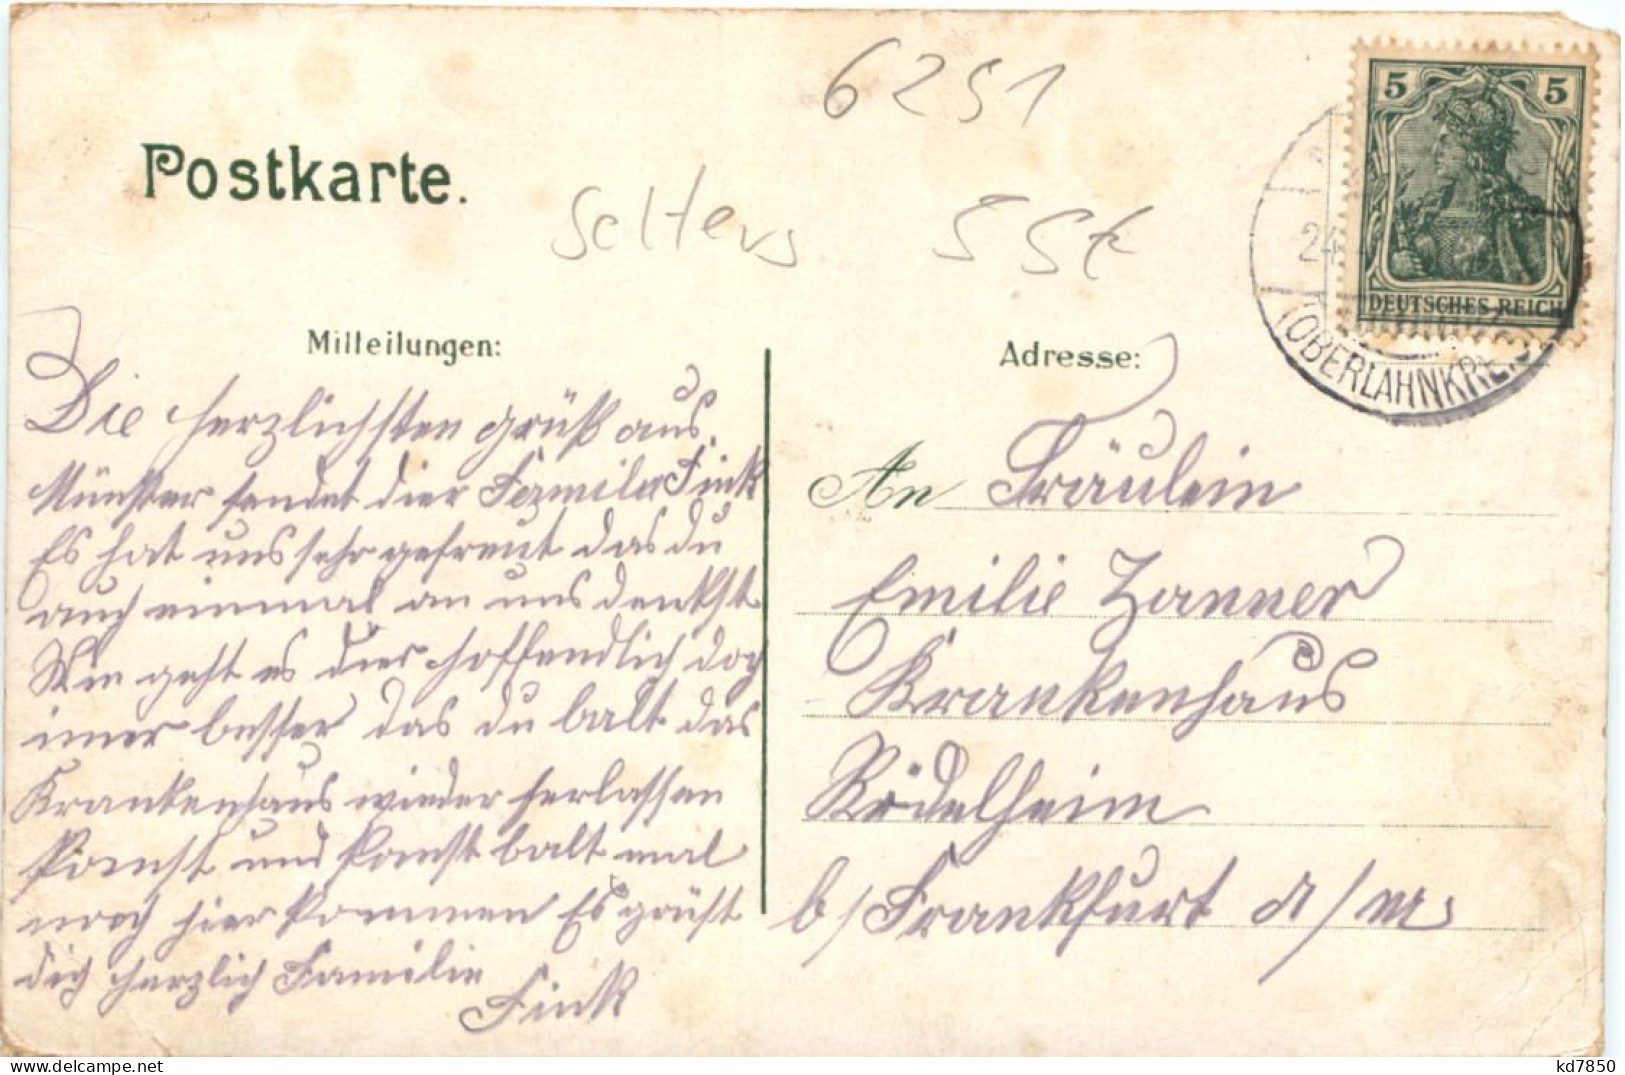 6251
Postkarte.
Selters 55€
5 5
DEUTSCHES REICH
24
(OBERLAHNKREIS)
Mitteilungen:
Die herzlichsten grüß aus
Münster sendet dier Familie Fink
Es hat uns sehr gefreut das du
auch einmal an uns denkst
Wie geht es dier hoffendlich doch
imer besser das du balt das
Krankenhaus wieder ferlassen
kanst und kanst balt mal
noch hier kommen Es grüst
dich herzlich Familie
Fink
Adresse:
An Fräulein
Emilie Zanner
Krankenhaus
Rödelheim
b/ Frankfurt a/m.
kd7850